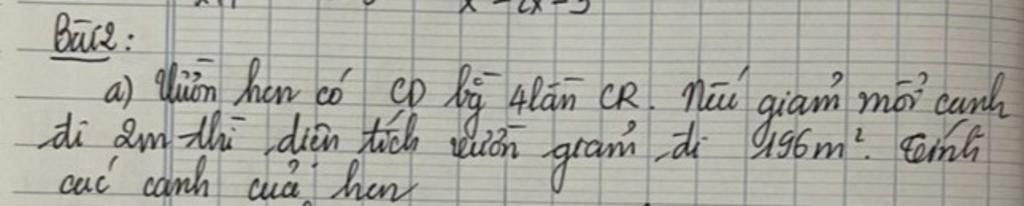 Bài 2:
a) Vườn hcn có CD bg 4 lần CR. Nếu giảm mỗi cạnh
đi 2m thì diện tích vườn giảm đi 196m². Tính
các cạnh của hcn